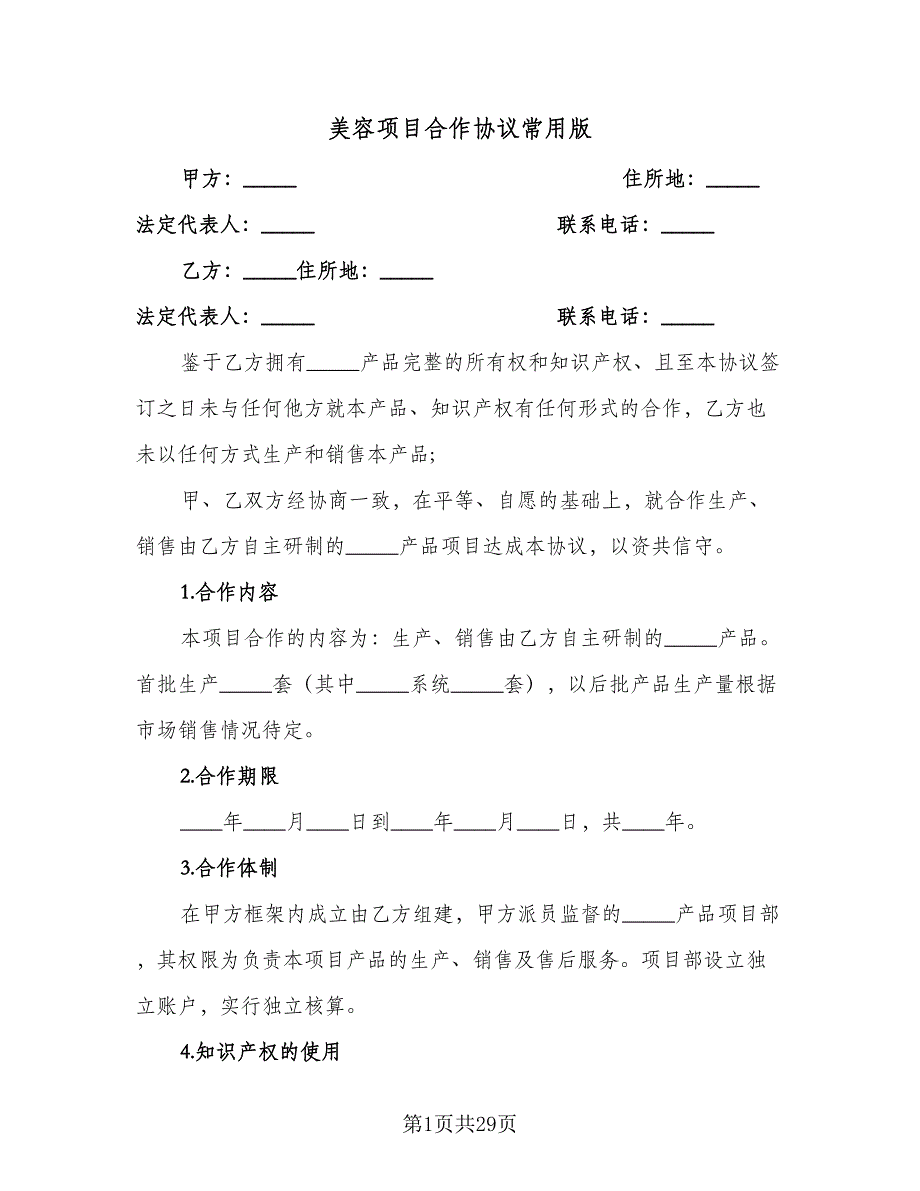 美容项目合作协议常用版
甲方：_____ 住所地：_____
法定代表人：_____ 联系电话：_____
乙方：_____住所地：_____
法定代表人：_____ 联系电话：_____
鉴于乙方拥有_____产品完整的所有权和知识产权、且至本协议签
订之日未与任何他方就本产品、知识产权有任何形式的合作，乙方也
未以任何方式生产和销售本产品;
甲、乙双方经协商一致，在平等、自愿的基础上，就合作生产、
销售由乙方自主研制的_____产品项目达成本协议，以资共信守。
1.合作内容
本项目合作的内容为：生产、销售由乙方自主研制的_____产品。
首批生产_____套（其中_____系统_____套），以后批产品生产量根据
市场销售情况待定。
2.合作期限
____年____月____日到____年____月____日，共____年。
3.合作体制
在甲方框架内成立由乙方组建，甲方派员监督的_____产品项目部
，其权限为负责本项目产品的生产、销售及售后服务。项目部设立独
立账户，实行独立核算。
4.知识产权的使用
第1页共29页